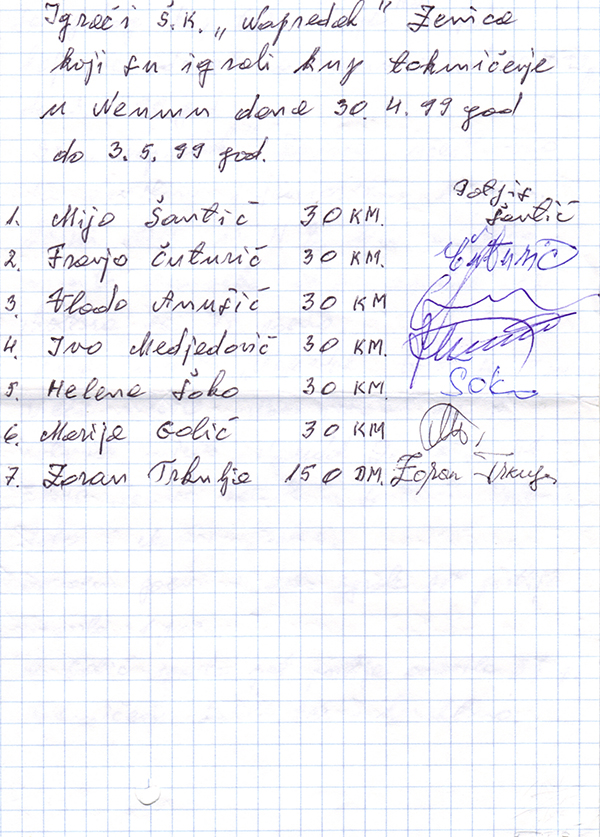 Igrači Š.K. „Napredak" Zenica
koji su igrali kup takmičenje
u Neumu dana 30. 4. 99 god
do 3. 5. 99 god.
Potpis
1. Mijo Šantić 30 KM. Šantić
2. Franjo Čuturić 30 KM. Čuturić
3. Vlado Anušić 30 KM
4. Ivo Medjedović 30 KM.
5. Helena Šoko 30 KM. Soko
6. Marija Golić 30 KM
7. Zoran Trkulja 150 DM. Zoran Trkulja